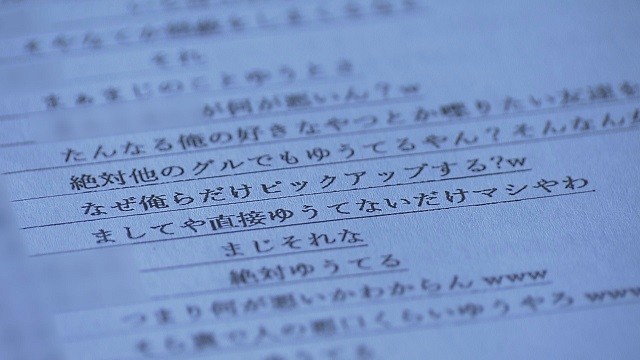 それ
まぁまじのことゆうとさ
が何が悪いん?w
たんなる俺の好きなやつとか喋りたい友達を
絶対他のグルでもゆうてるやん?そんなん
なぜ俺らだけピックアップする?w
ましてや直接ゆうてないだけマシやわ
まじそれな
絶対ゆうてる
つまり何が悪いかわからんwww
そら裏で人の悪口くらいゆうやろwww